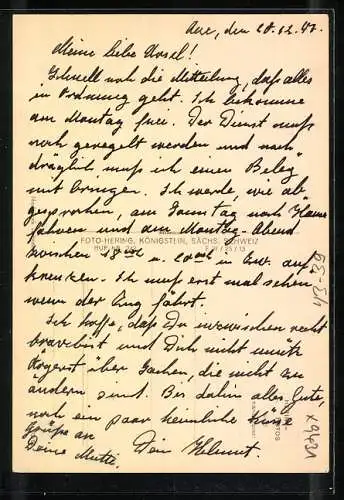 Aue, den 28.12.47.
Meine liebe Ursel!
Schnell noch die Mitteilung, daß alles
in Ordnung geht. Ich bekomme
am Montag frei. Der Dienst muß
noch geregelt werden und nach
träglich muß ich einen Beleg
mit bringen. Ich werde, wie ab
gesprochen, am Sonntag nach Hause
fahren und am Montag-Abend
FOTO-HERING, KÖNIGSTEIN, SÄCHS. SCHWEIZ
zwischen 18 00 u. 20 00 in auf
kreuzen. Ich muß erst mal sehen
wann der Zug fährt.
Ich hoffe, daß Du inzwischen recht
brav bist und Dich nicht unnütz
ärgerst über Sachen, die nicht zu
ändern sind. Bis dahin alles Gute,
noch ein paar heimliche Küsse
Grüße an
Deine Mutti. Dein Helmut